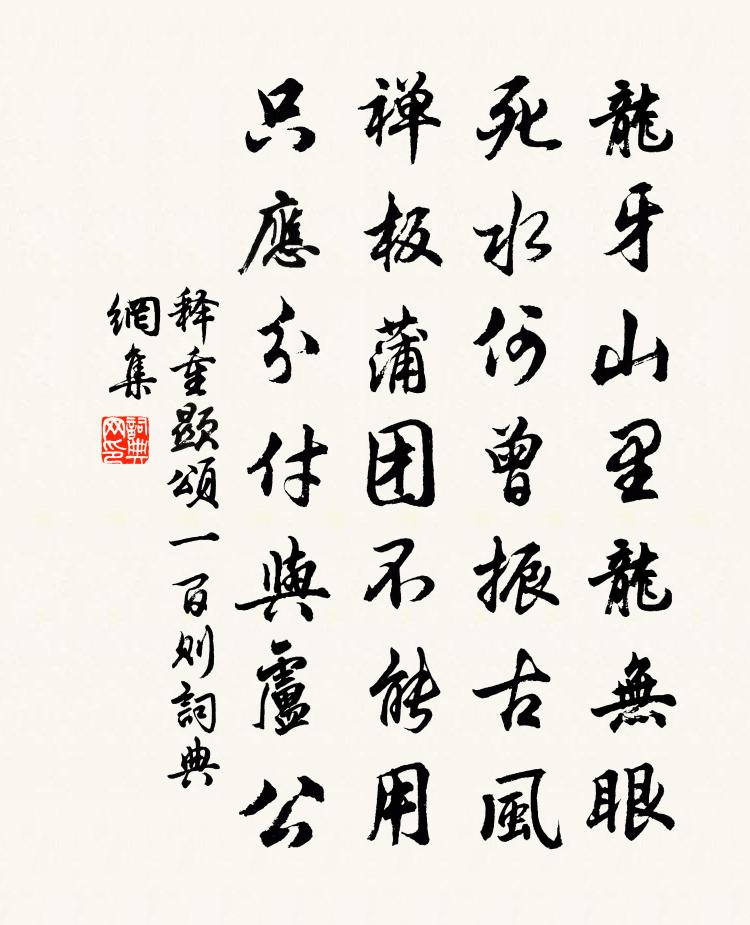 龍牙山里龍無眼
死水何曾振古風
禅板蒲团不能用
只應分付與盧公
释重顯頌一百則詞典
網集
詞典網印